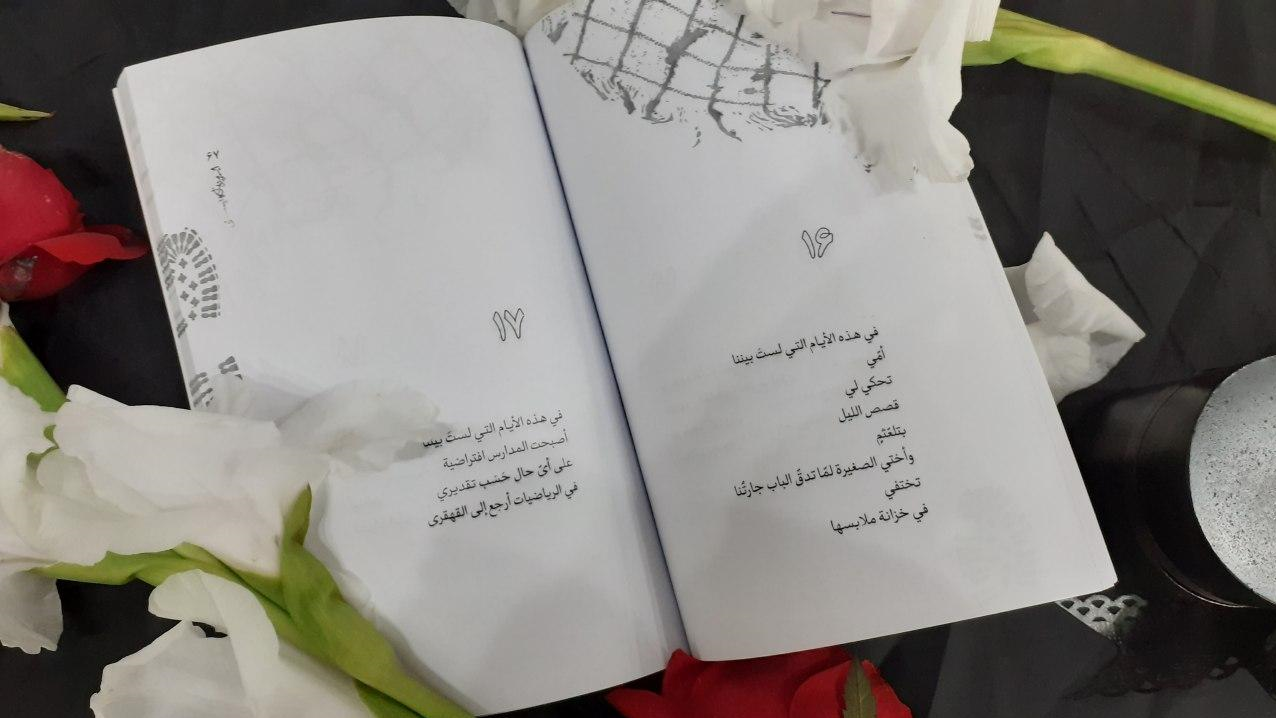 ۱۶
في هذه الأيام التي لستَ بيننا
أمّي
تحكي لي
قصص الليل
بتلعّثمٍ
وأختي الصغيرة لمّا تدقّ الباب جارتُنا
تختفي
في خزانة ملابسها
۶۷
۱۷
في هذه الأيام التي لستَ
أصبحت المدارس افتراضية
على أيّ حال حَسَب تقديري
في الرياضيات أرجع إلى القهقرى